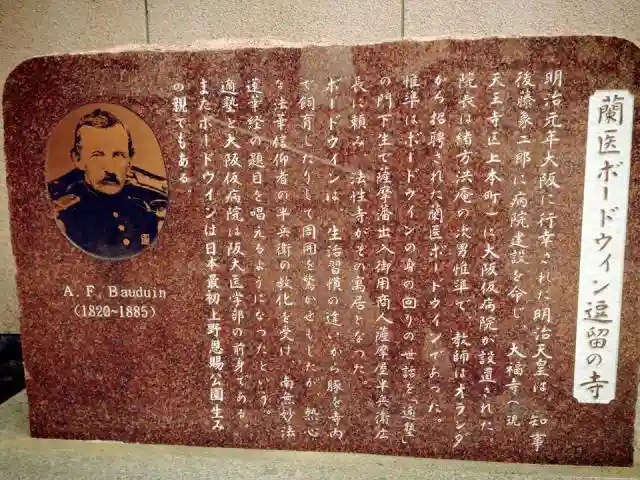 蘭医ボードウイン逗留の寺
明治元年大阪に行幸された明治天皇は 知事
後藤象二郎に病院建設を命じ、大福寺(現
天王寺区上本町)に大阪仮病院が設置された。
院長は緒方洪庵の次男惟準で 教師はオランダ
から招聘された蘭医ボードウインであった。
惟準はボードウインの身の回りの世話を「適塾」
の門下生で薩摩藩出入御用商人薩摩屋半兵衛店
長に頼み 法性寺がその寓居となった。
ボードウインは 生活習慣の違いから豚を寺内
で飼育したりして周囲を驚かせもしたが 熱心
な法華信仰者の半兵衛の教化を受け 南無妙法
蓮華経の題目を唱えるようになったという。
適塾と大阪仮病院は阪大医学部の前身である。
またボードウインは日本最初上野恩賜公園生み
の親でもある。
A. F. Bauduin
(1820~1885)